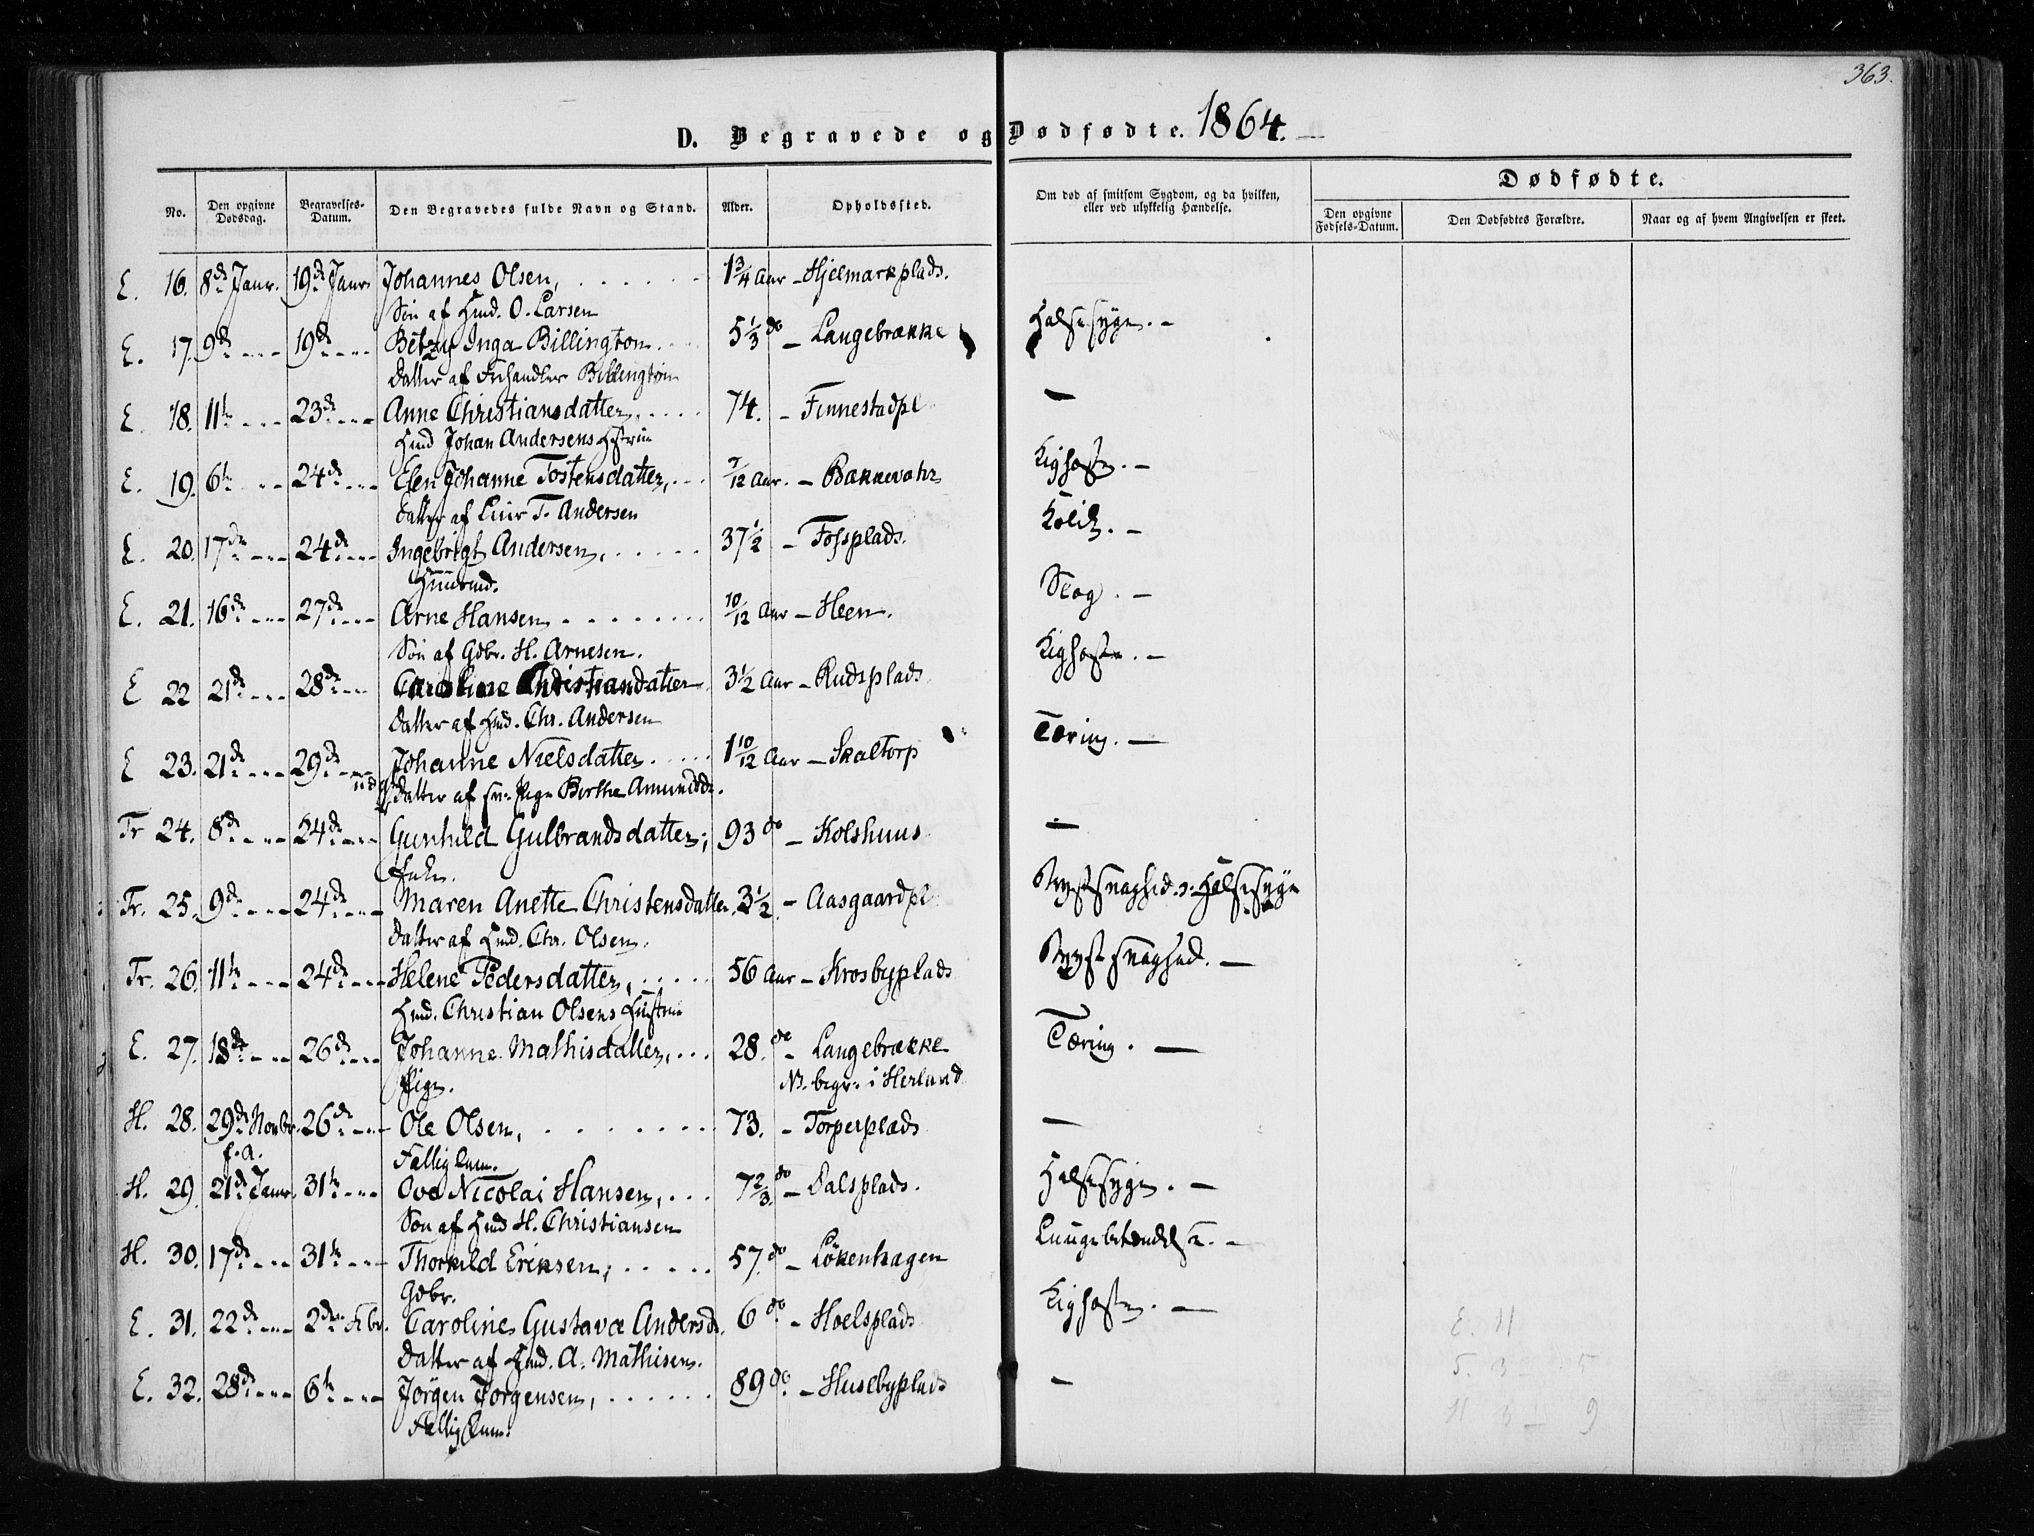 363.
D. Begravede og Dødfødte. 1864.
No. Den opgivne Dødsdag. Begravelses-Datum. Den Begravedes fulde Navn og Stand. Alder. Opholdssted. Om død af smitsom Sygdom, og da hvilken, eller ved ulykkelig Hændelse. Dødfødte.
Den opgivne Fødsels-Datum. Den Dødfødtes Forældre. Naar og af hvem Angivelsen er skeet.
E. 16. 8de Janr. 19de Janr. Johannes Olsen, 1 3/4 Aar - Hjelmarkplads.
Søn af Hmd. O. Larsen
E. 17. 9de 19de Betzy Inga Billington 5 1/3 do - Langebrække Halsesyge. -
Datter af Billington
E. 18. 11te 23de Anne Christiansdatter, 74. - Finnestadpl. -
Hmd Johan Andersens Hstru
E. 19. 6te 24de Elen Johanne Tostensdatter, 7/12 Aar. - Bakkevahr Kighoste. -
Datter af T. Andersen
E. 20. 17de 24de Ingebrigt Andersen, 37 1/2 - Fossplads. Kolik. -
Huusmd.
E. 21. 16de 27de Arne Hansen 10/12 Aar - Heen. Slag. -
Søn af Gdbr. H. Arnesen. Kighoste. -
E 22 21de 28de Caroline Christiansdatter 3 1/2 Aar - Rudsplads
Datter af Hmd. Chr. Andersen
E 23. 21de 29de Johanne Nielsdatter 1 10/12 Aar - Skaltorp Tæring. -
Datter af Pige Berthe Amundsdr.
Tr 24. 8de 24de Gunhild Gulbrandsdatter; 93 do - Kolshuus -
Enke.
Tr. 25. 9de 24de Maren Anette Christensdatter 3 1/2 - Aasgaardpl. Brystsvaghed o: Halsesyge
Datter af Hmd. Chr. Olsen.
Tr. 26. 11te 24de Helene Pedersdatter, 56 Aar - Krosbyplads Brystsvaghed. -
Hmd. Christian Olsens Hustru
E. 27. 18de 26de Johanne Mathisdatter, 28. do - Langebrække Tæring. -
Pige. NB. begr. i Herland
H. 28. 29de Novbr. 26de Ole Olsen, 73. - Torperplads -
f. A. Fattiglem.
H. 29. 21de Janr. 31te Ove Nicolai Hansen, 7 2/3 do - Dalsplads. Halsesyge. -
Søn af Hmd H. Christiansen
H. 30. 17de 31te Thorkild Eriksen, 57. do - Løkenhagen Lungebetændelse. -
Gdbr.
E. 31. 22de 2den Febr. Caroline Gustava Andersd. 6 do - Hoelsplads Kighoste. -
Datter af Hmd. A. Mathisen.
E. 32. 28de 6te Jørgen Jørgensen, 89 do. - Husebyplads -
Fattiglem.
E. 11
5. 3 - 5
H 3 - 9